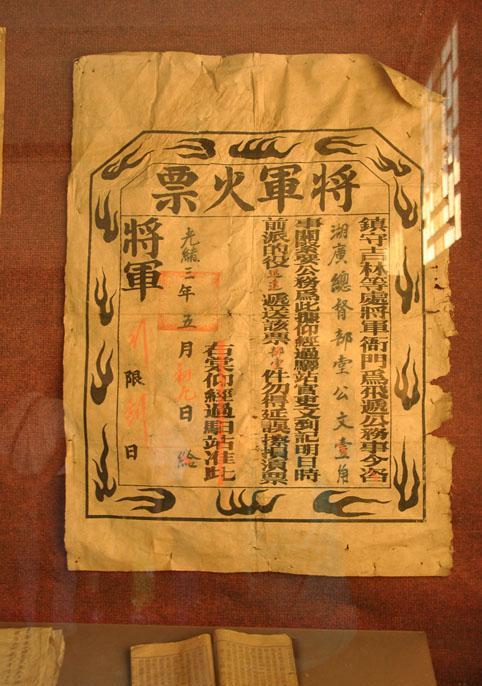 將軍火票
鎮守吉林等處將軍衙門爲飛遞公務事今咨
湖廣總督部堂公文壹角
事關緊要公務爲此據仰經過驛站官吏文到記明日時
前派的役迅速遞送該票部堂件勿得延誤擦損須票
右票仰經過馹站准此
光緒三年五月初九日給
將軍
限日